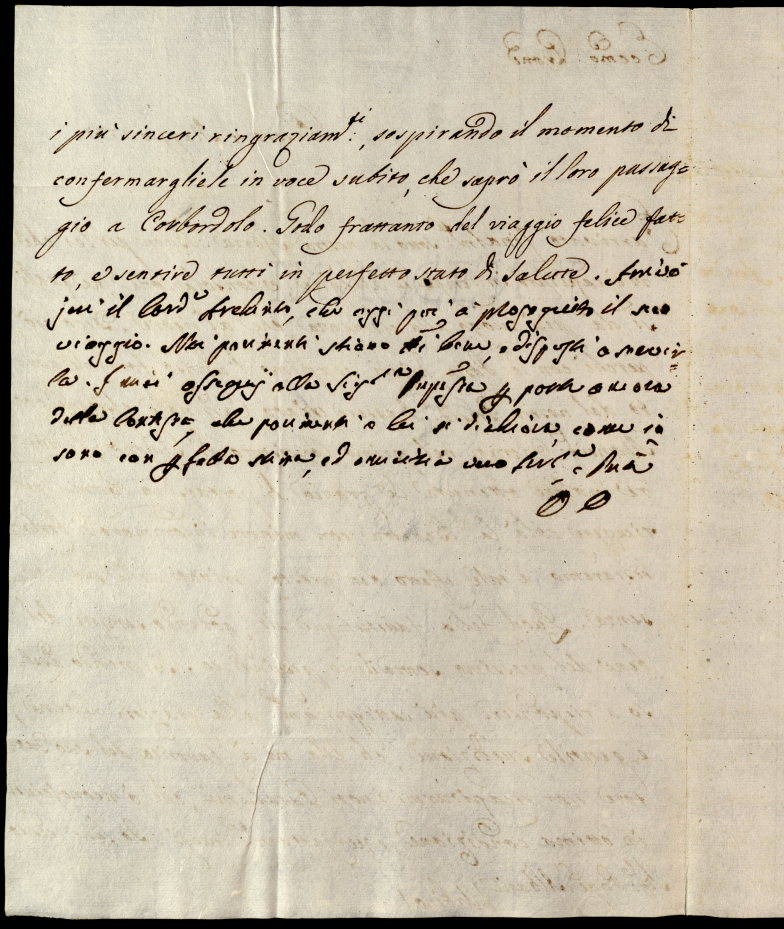 i più sinceri ringraziam:ti, sospirando il momento di
confermargliele in voce subito, che saprò il loro passag=
gio a Corbordolo. Godo frattanto del viaggio felice fat=
to, e sentire tutti in perfetto stato di salute. Arrivò
jeri il Card.e che oggi poi à proseguito il suo
viaggio. Noi parimenti stiamo bene, e disposti a servir=
la. I miei ossequj alla Sig.ra p parte ancora
della Contessa, che parimenti a lei si dichiara, come io
sono con pfetta stima, ed amicizia suo